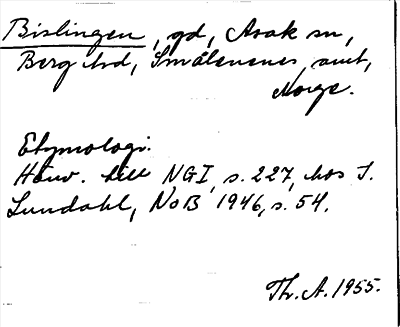 Bislingen, gd, Asak sn,
Berg hd, Smålenenes amt,
Norge.
Etymologi.
Hänv. till NGI, s. 227, hos I.
Lundahl, NoB 1946, s. 54.
Th. A. 1955.